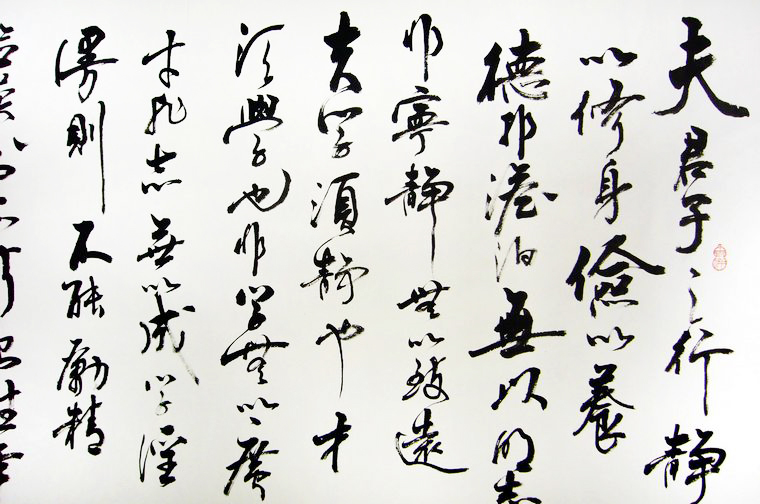 夫君子之行靜
以修身儉以養
德非澹泊無以明志
非寧靜無以致遠
夫學須靜也才
須學也非學無以廣
才非志無以成學淫
漫則不能勵精